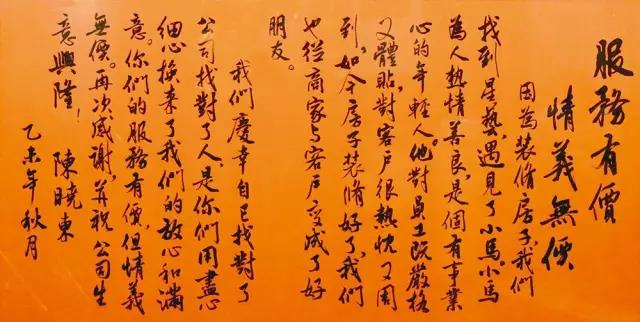 服務有價
情義無價
因為裝脩房子,我們
找到星藝,遇見了小馬。小馬
為人熱情善良,是個有事業
心的年輕人。他對員工既嚴格
又體貼,對客戶很熱忱又周
到,如今房子裝脩好了,我們
也從商家与客戶变成了好
朋友。
我們慶幸自已找對了
公司找對了人,是你們用盡心
細心換来了我們的放心和滿
意。你們的服務有價,但情義
無價。再次感謝,并祝公司生
意興隆!
陳曉東
乙未年秋月